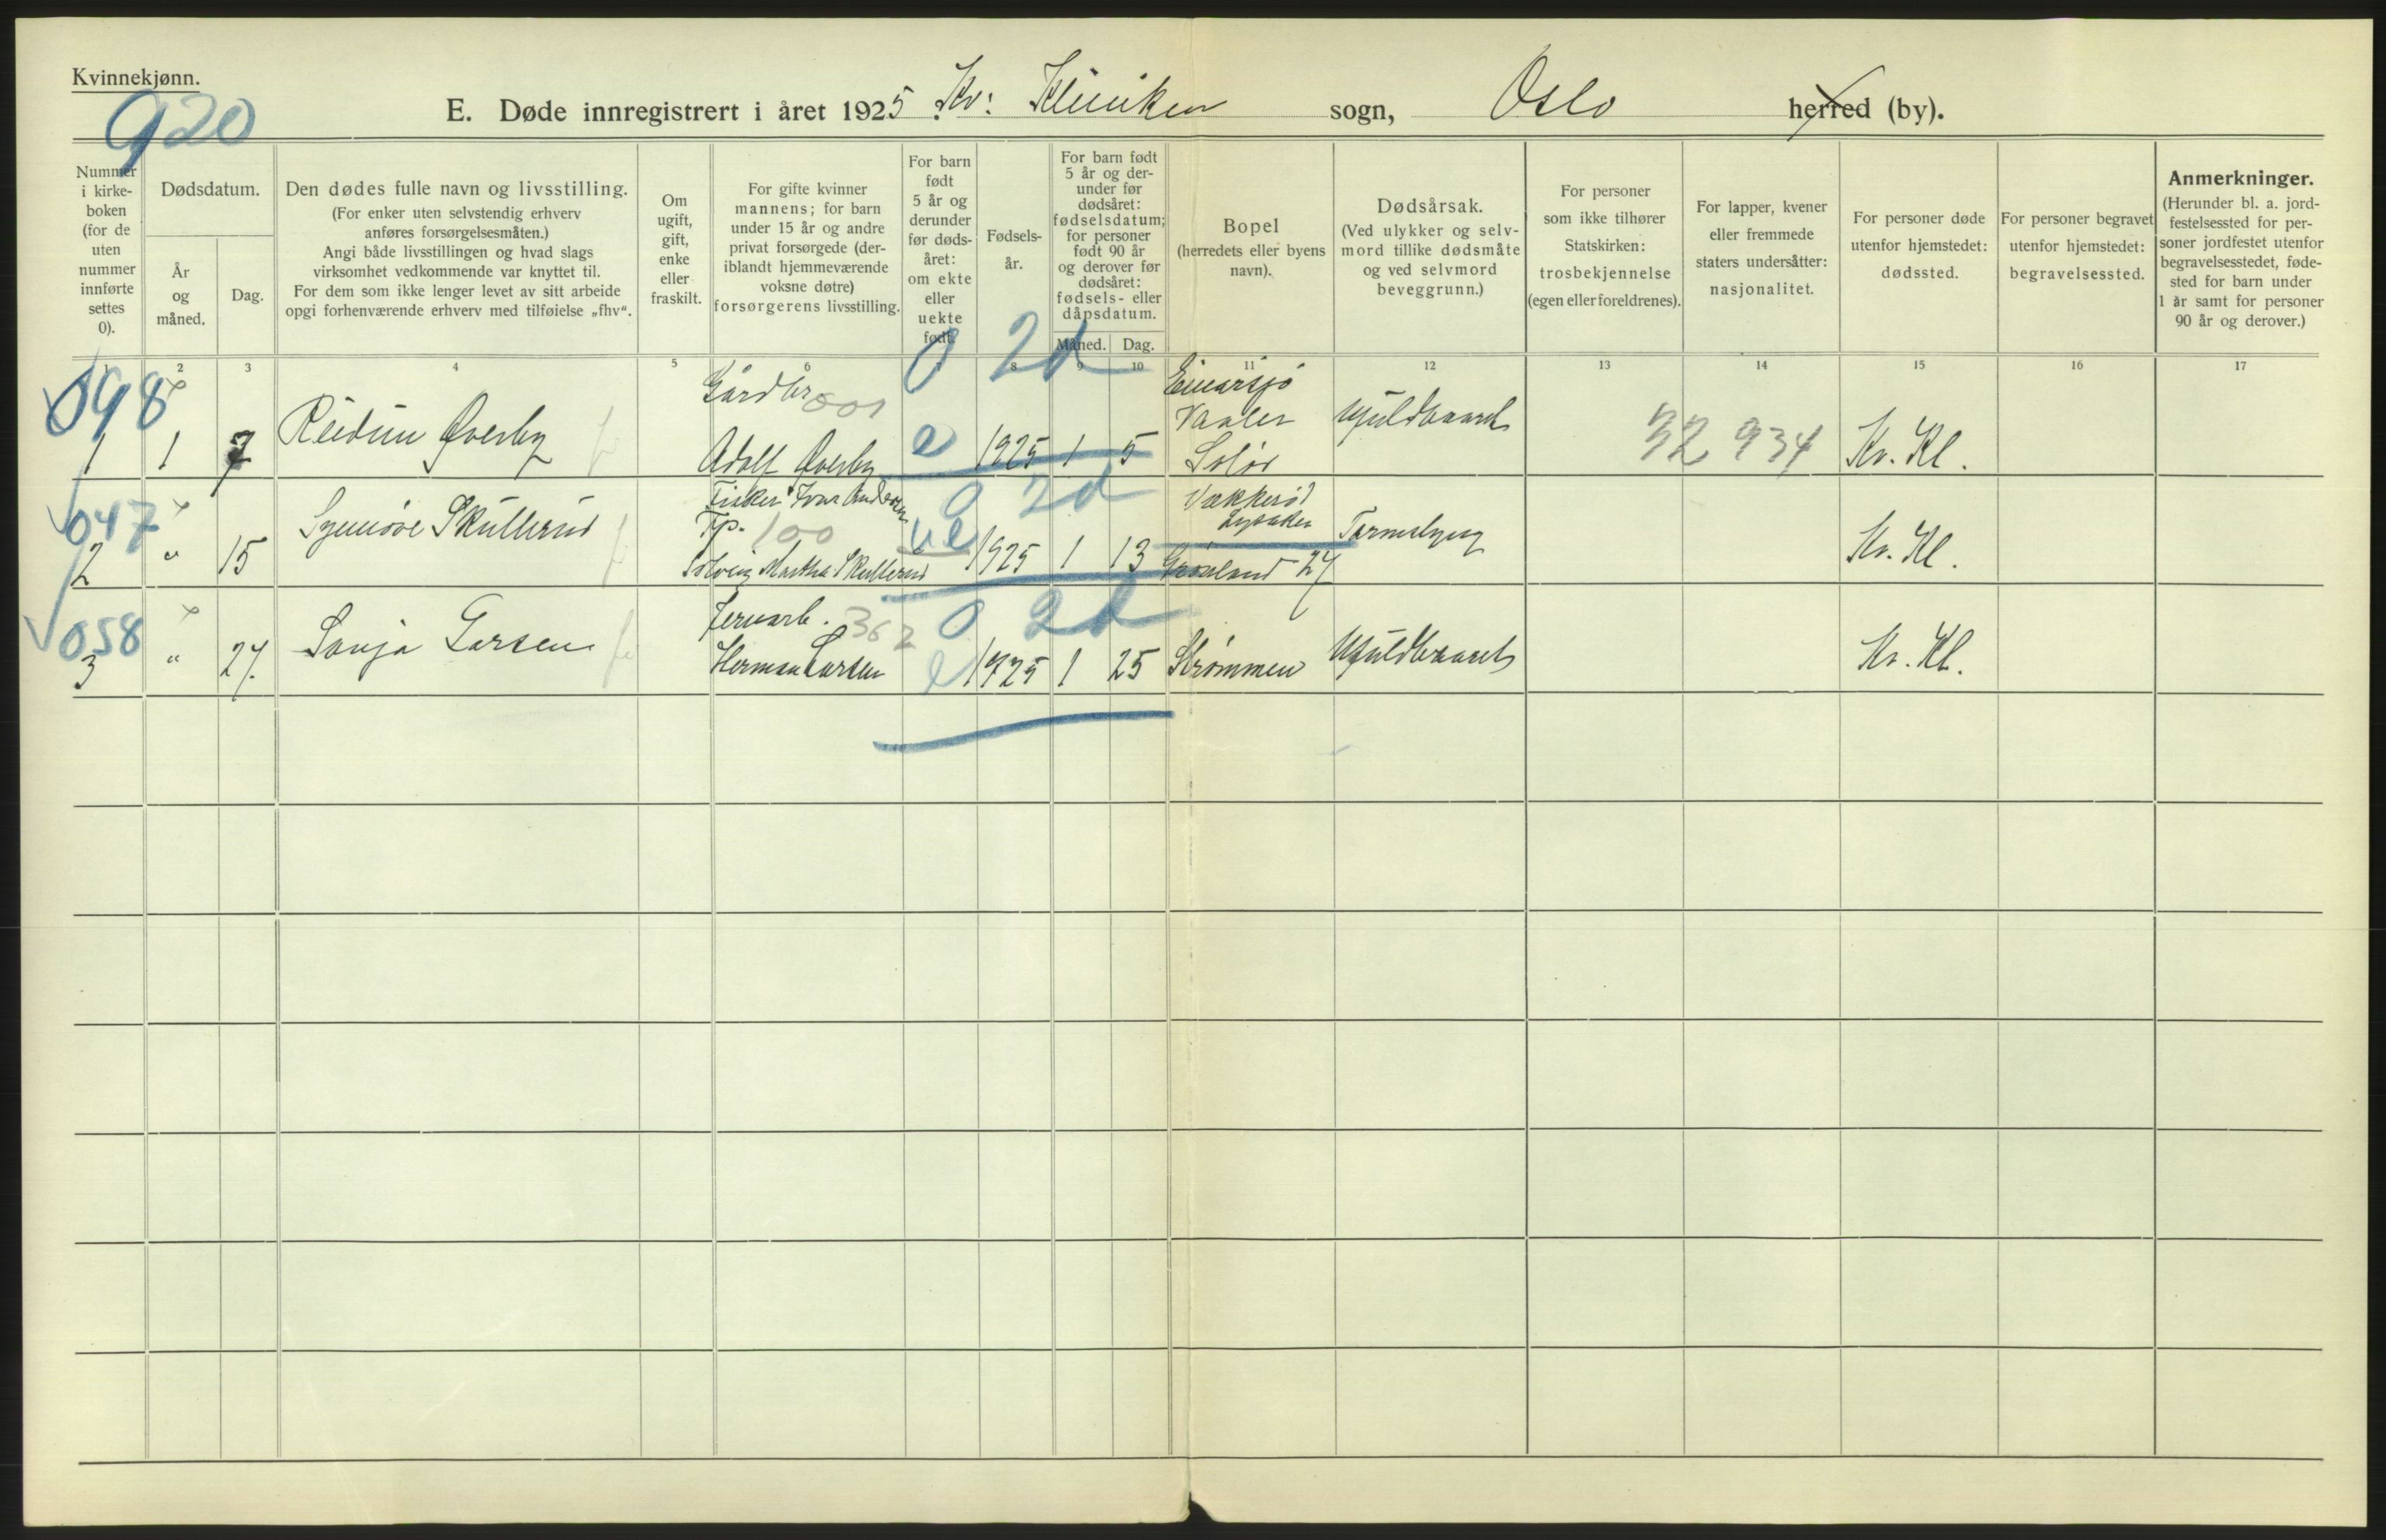 Kvinnekjønn.
920
E. Døde innregistrert i året 1925. Kv: Kliniken sogn, Oslo herred (by).
Nummer i kirke-boken (for de uten nummer innførte settes 0).
Dødsdatum.
År og måned.
Dag.
Den dødes fulle navn og livsstilling.
(For enker uten selvstendig erhverv
anføres forsørgelsesmåten.)
Angi både livsstillingen og hvad slags
virksomhet vedkommende var knyttet til.
For dem som ikke lenger levet av sitt arbeide
opgi forhenværende erhverv med tilføielse „fhv“.
Om
ugift,
gift,
enke
eller
fraskilt.
For gifte kvinner
mannens; for barn
under 15 år og andre
privat forsørgede (der-
iblandt hjemmeværende
voksne døtre)
forsørgerens livsstilling.
For barn
født
5 år og
derunder
før døds-
året:
om ekte
eller
uekte
født.
Fødsels-
år.
For barn født
5 år og der-
under før
dødsåret:
fødselsdatum;
for personer
født 90 år
og derover før
dødsåret:
fødsels- eller
dåpsdatum.
Måned. Dag.
Bopel
(herredets eller byens
navn).
Dødsårsak.
(Ved ulykker og selv-
mord tillike dødsmåte
og ved selvmord
beveggrunn.)
For personer
som ikke tilhører
Statskirken:
trosbekjennelse
(egen eller foreldrenes).
For lapper, kvener
eller fremmede
staters undersåtter:
nasjonalitet.
For personer døde
utenfor hjemstedet:
dødssted.
For personer begravet
utenfor hjemstedet:
begravelsessted.
Anmerkninger.
(Herunder bl. a. jord-
festelsessted for per-
soner jordfestet utenfor
begravelsesstedet, føde-
sted for barn under
1 år samt for personer
90 år og derover.)
1 2 3 4 5 6 7 8 9 10 11 12 13 14 15 16 17
098
0 2d
Gårdbr. 001
1 1 7 Reidun Øverby
Adolf Øverby e 1925 1 5
Vaaler
Solør
Ufuldbaaret
32 934
Kv. Kl.
047
0 2d
Fisker Ivar Andersen
Fp. 100
2 " 15 Synnøve Skullerud
Solveig Martha Skullerud ue 1925 1 13
Vækkerø
Lysaker
Grønland 27
Tarmslyng
Kv. Kl.
058
0 2d
Jernarb. 362
3 " 27. Sonja Larsen
Herman Larsen e 1925 1 25 Strømmen Ufuldbaaret
Kv. Kl.